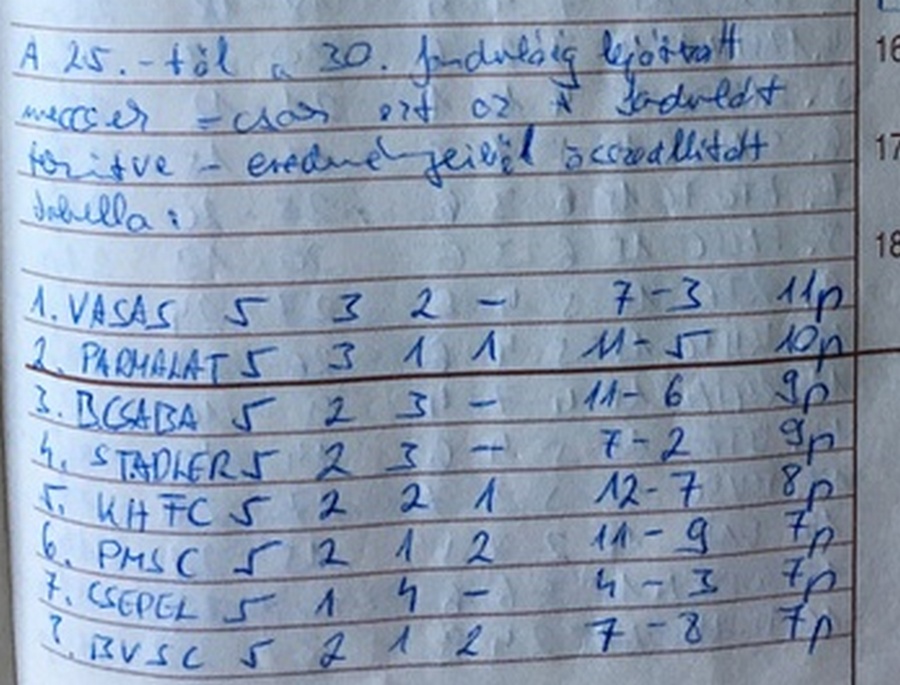 A 25.-től a 30. fordulóig lejátszott
meccsek - csak ezt az fordulót
tekintve - eredményeiből összeállított
tabella:
1. VASAS 5 3 2 - 7-3 11p
2. PARMALAT 5 3 1 1 11-5 10p
3. BCSABA 5 2 3 - 11-6 9p
4. STADLER 5 2 3 - 7-2 9p
5. KHTC 5 2 2 1 12-7 8p
6. PMSC 5 2 1 2 11-9 7p
7. CSEPEL 5 1 4 - 4-3 7p
?. BVSC 5 2 1 2 7-8 7p
16
17
18